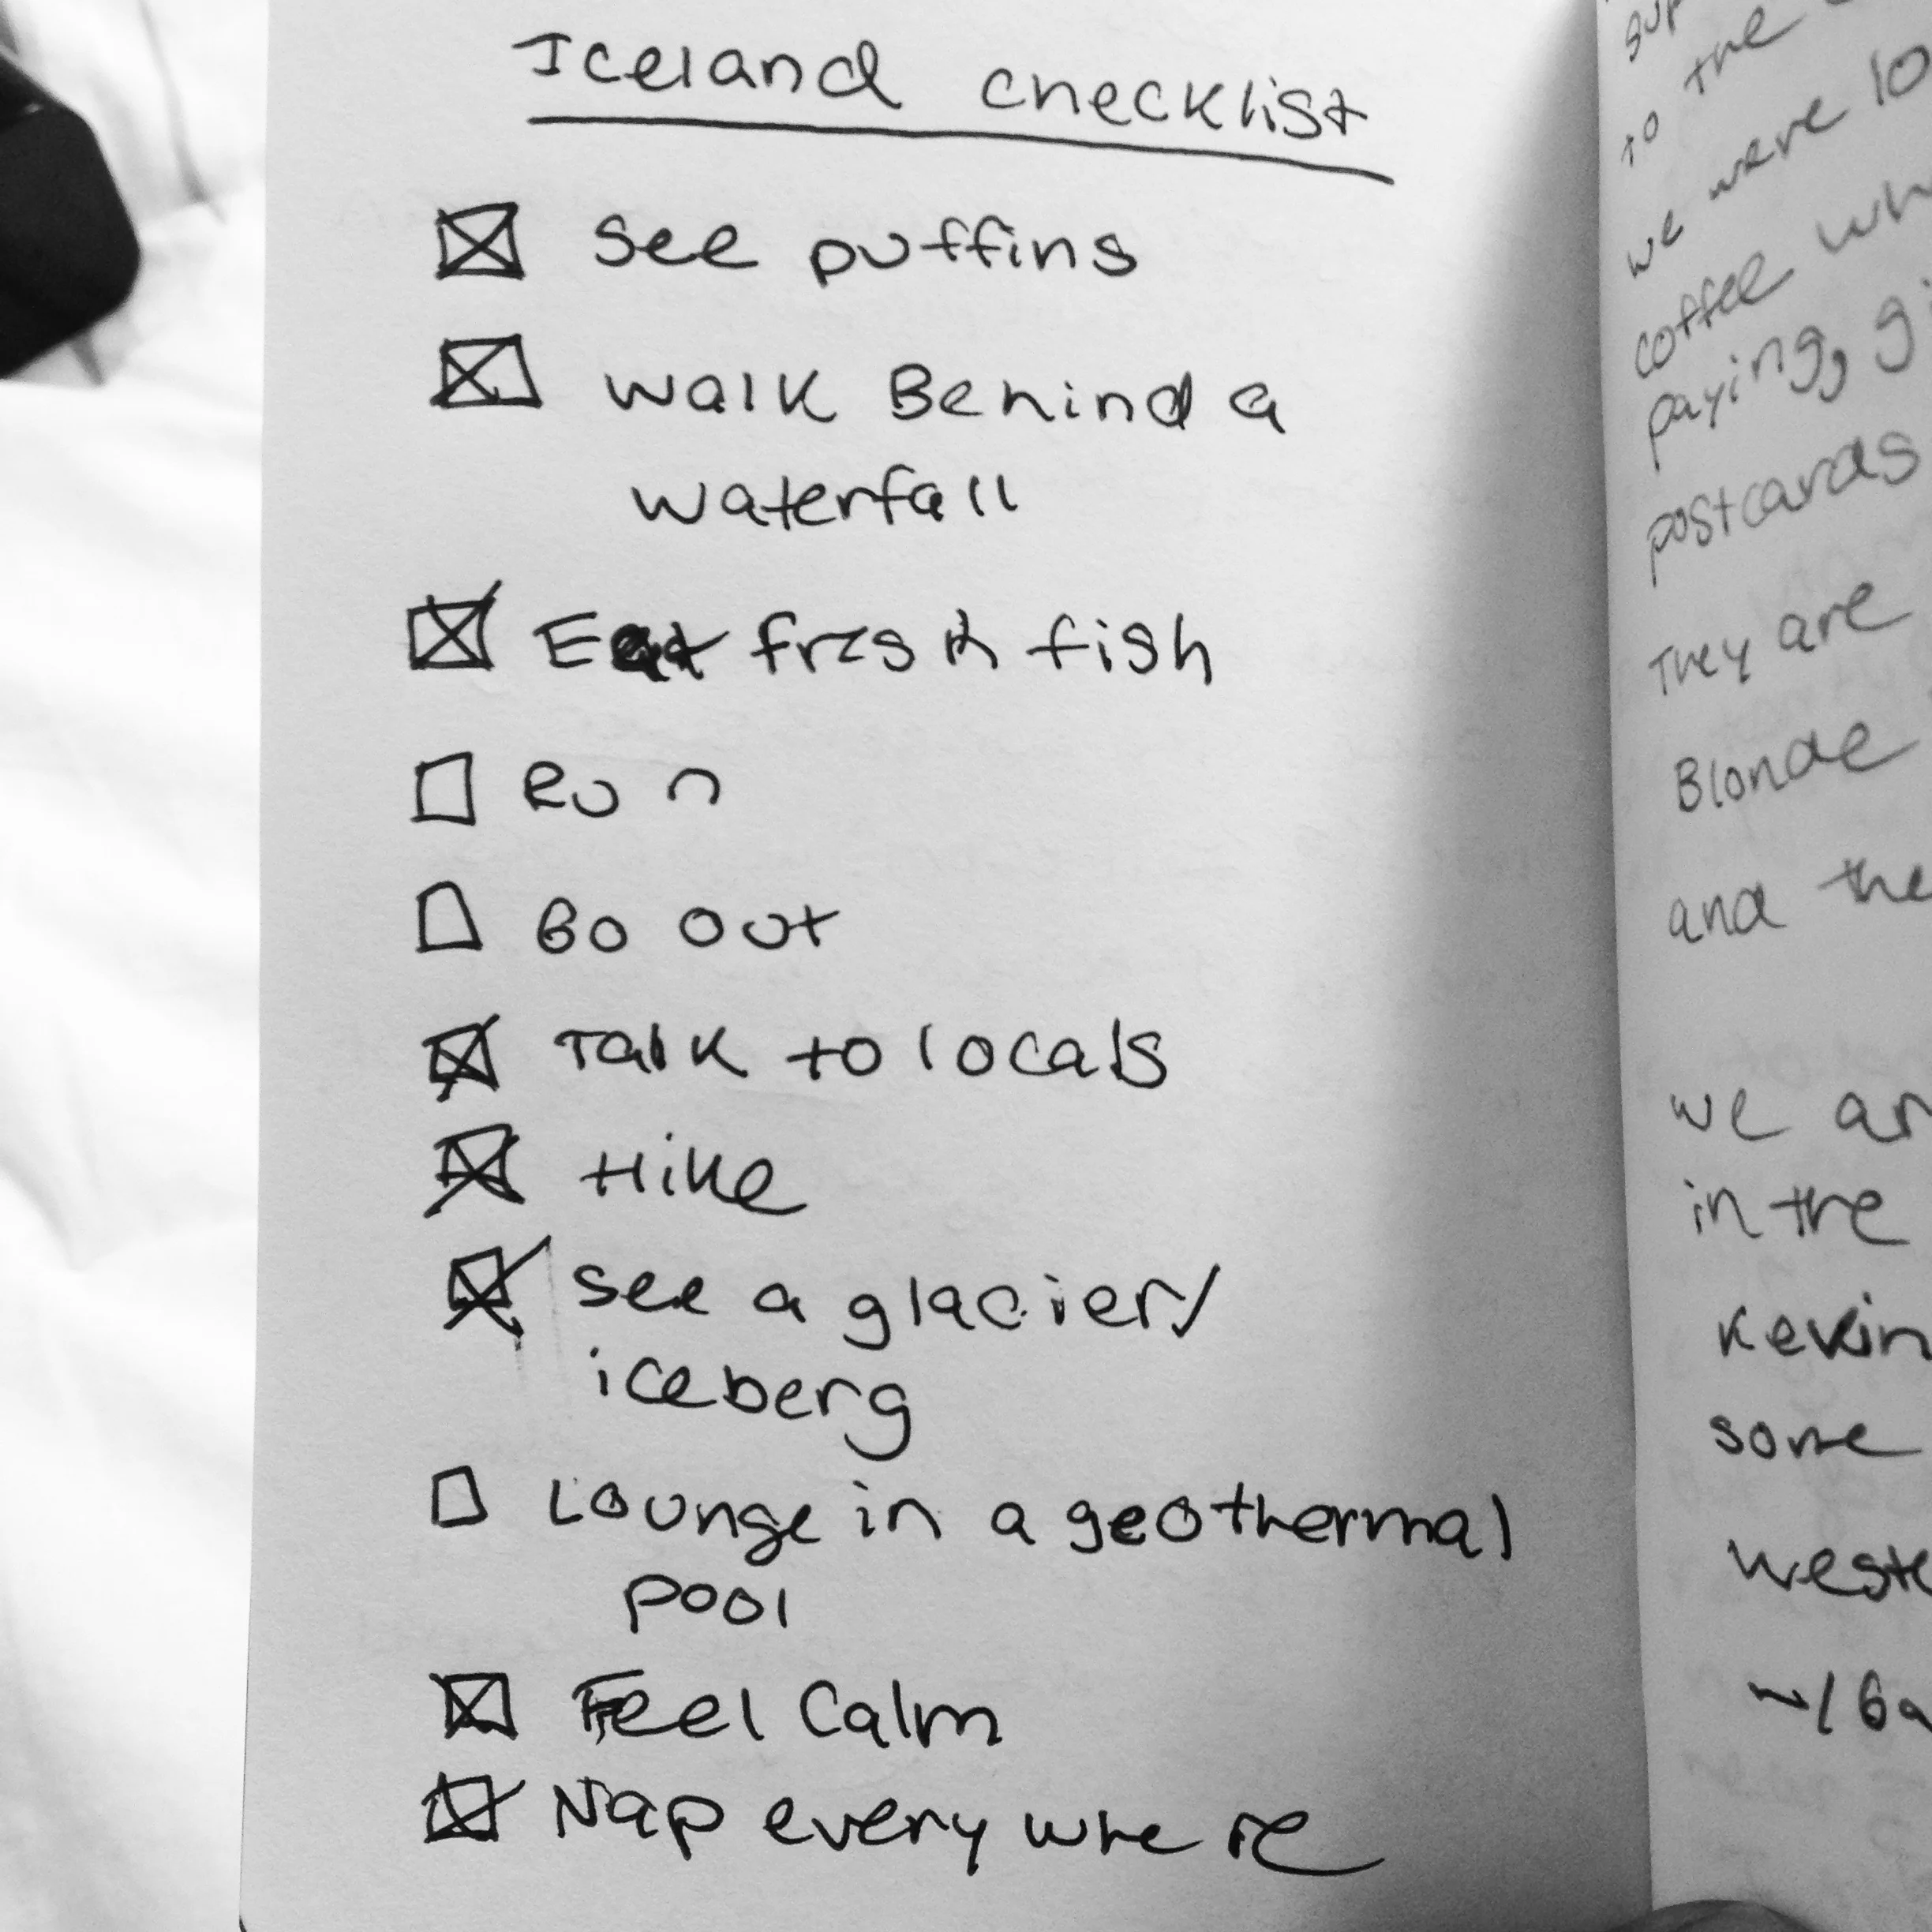 Iceland checklist
See puffins
Walk Behind a
waterfall
Eat fresh fish
Run
Go out
Talk to locals
Hike
See a glacier/
iceberg
Lounge in a geothermal
pool
Feel Calm
Nap everywhere
to the
we were
coffee
paying,
postcards
They are
Blonde
and the
we
in the
Kevin
some
w/